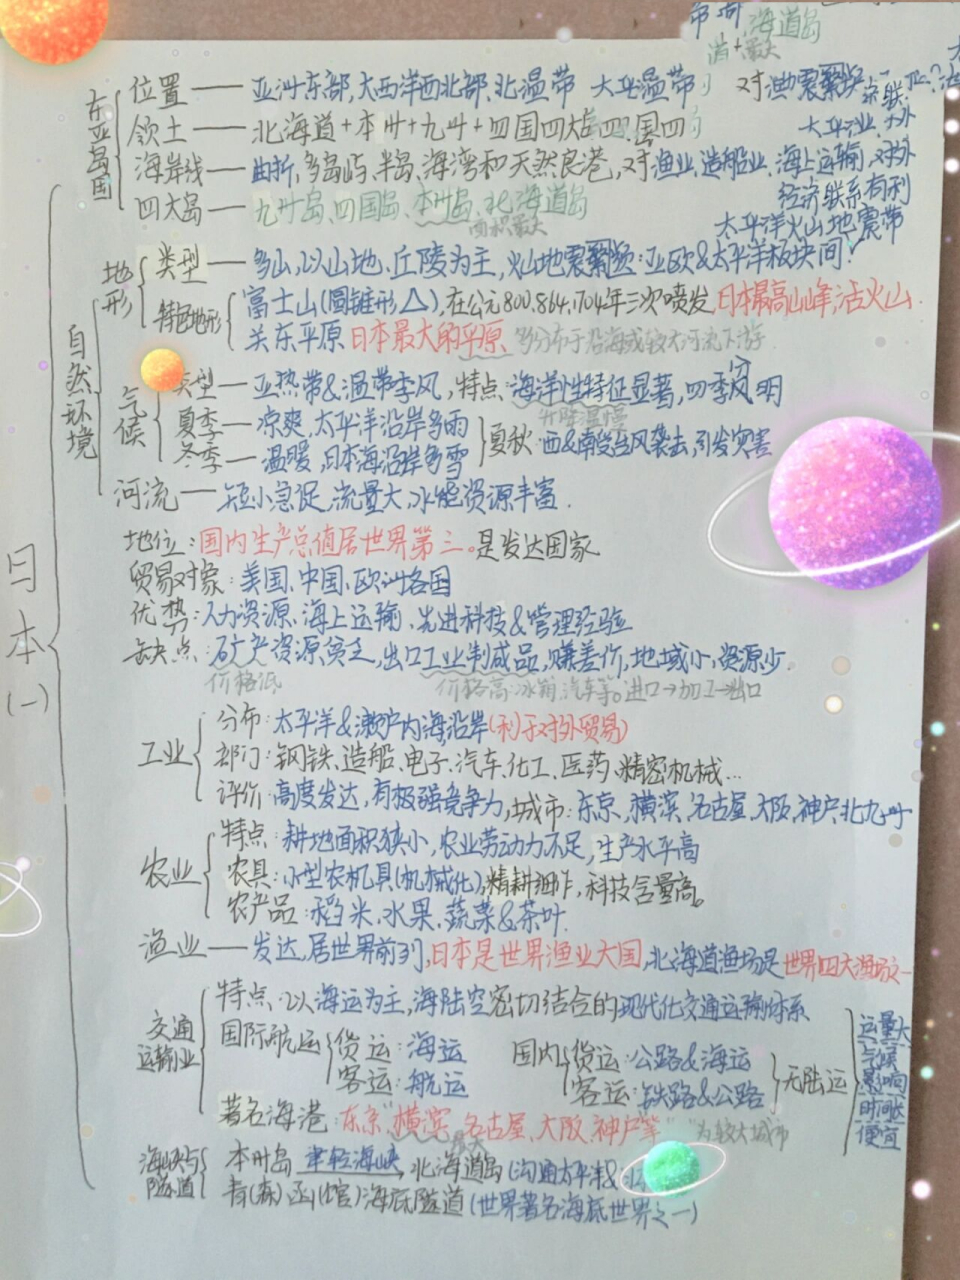 海道岛
最大
日本(一)
自然环境
东亚岛国
位置——亚洲东部,大西洋西北部、北温带 太平温带
对渔震繁
领土——北海道+本州+九州+四国四大岛四国四
海岸线——曲折,多岛屿、半岛、海湾和天然良港,对渔业、造船业、海上运输、对外
经济联系有利
四大岛——九州岛、四国岛、本州岛、北海道岛
面积最大
太平洋火山地震带
地形
类型——多山,以山地、丘陵为主,火山地震繁频:亚欧&太平洋板块间?
特色地形
富士山(圆锥形△),在公元800,864,704年三次喷发,日本最高山峰,活火山
关东平原 日本最大的平原 多分布于沿海或较大河流下游
气候
类型——亚热带&温带季风,特点:海洋性特征显著,四季分明
升降温慢
夏季——凉爽,太平洋沿岸多雨
冬季——温暖,日本海沿岸多雪
夏秋:西&南受台风袭击,引发灾害
河流——短小急促,流量大,水能资源丰富.
地位:国内生产总值居世界第三。是发达国家
贸易对象:美国、中国、欧洲各国
优势:人力资源、海上运输、先进科技&管理经验
缺点:矿产资源贫乏,出口工业制成品,赚差价,地域小,资源少.
价格低 价格高:冰箱、汽车等。进口→加工→出口
工业
分布:太平洋&濑户内海沿岸(利于对外贸易)
部门:钢铁、造船、电子、汽车、化工、医药、精密机械…
评价:高度发达,有极强竞争力,城市:东京,横滨,名古屋,大阪,神户,北九州
农业
特点:耕地面积狭小,农业劳动力不足,生产水平高
农具:小型农机具(机械化),精耕细作,科技含量高。
农产品:稻米,水果,蔬菜&茶叶.
渔业——发达,居世界前列,日本是世界渔业大国,北海道渔场是世界四大渔场之一
交通运输业
特点:以海运为主,海陆空密切结合的现代化交通运输体系
国际航运
货运:海运
客运:航运
国内
货运:公路&海运
客运:铁路&公路
无陆运
运量大
气候
影响
时账
便宜
著名海港:东京"横滨、名古屋、大阪、神户等" "为较大城市
最大
海峡与隧道
本州岛 津轻海峡 北海道岛(沟通太平洋&
青(森)函(馆)海底隧道(世界著名海底世界之一)